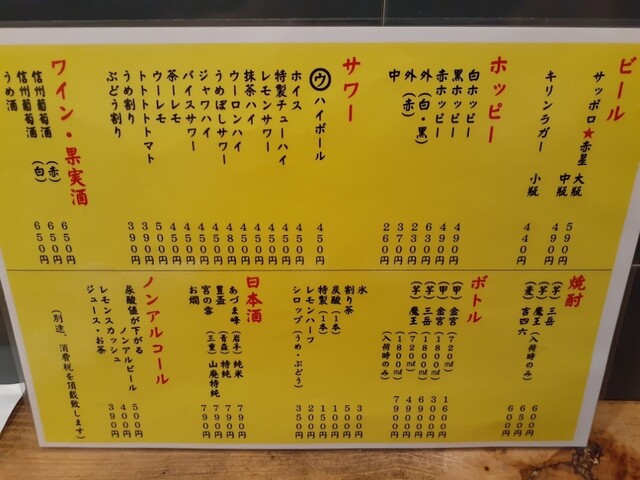 ビール
サッポロ★赤星 大瓶 590円
中瓶
キリンラガー
小瓶 440円
ホッピー
白ホッピー 490円
黒ホッピー 490円
赤ホッピー 630円
外（白・黒） 230円
外（赤） 370円
中 260円
サワー
ウ ハイボール 450円
ホイス
特製チューハイ
レモンサワー
抹茶ハイ
ウーロンハイ
うめぼしサワー
ジャワハイ
バイスサワー
茶ーレモ
ウーレモ
トトトトトマト
うめ割り 390円
ぶどう割り 390円
ワイン・果実酒
信州葡萄酒（赤） 650円
信州葡萄酒（白） 650円
うめ酒
焼酎
（芋）三岳 600円
（芋）魔王（入荷時のみ） 650円
（麦）吉四六 600円
ボトル
（甲）金宮 720ml 1600円
（甲）金宮 1800ml
（芋）三岳 1800ml
（芋）魔王 720ml
1800ml（入荷時のみ）
氷 300円
割り茶 500円
炭酸（1本） 150円
特製（1本）
レモンハーフ
シロップ（うめ・ぶどう） 350円
日本酒
あづま峰（岩手）純米 790円
豊盃（青森）特純 790円
宮の雪（三重）山廃特純 790円
お燗
ノンアルコール
尿酸値が下がる
ノンアルビール 500円
レモンスカッシュ 400円
ジュース・お茶 390円
（別途、消費税を頂戴致します）